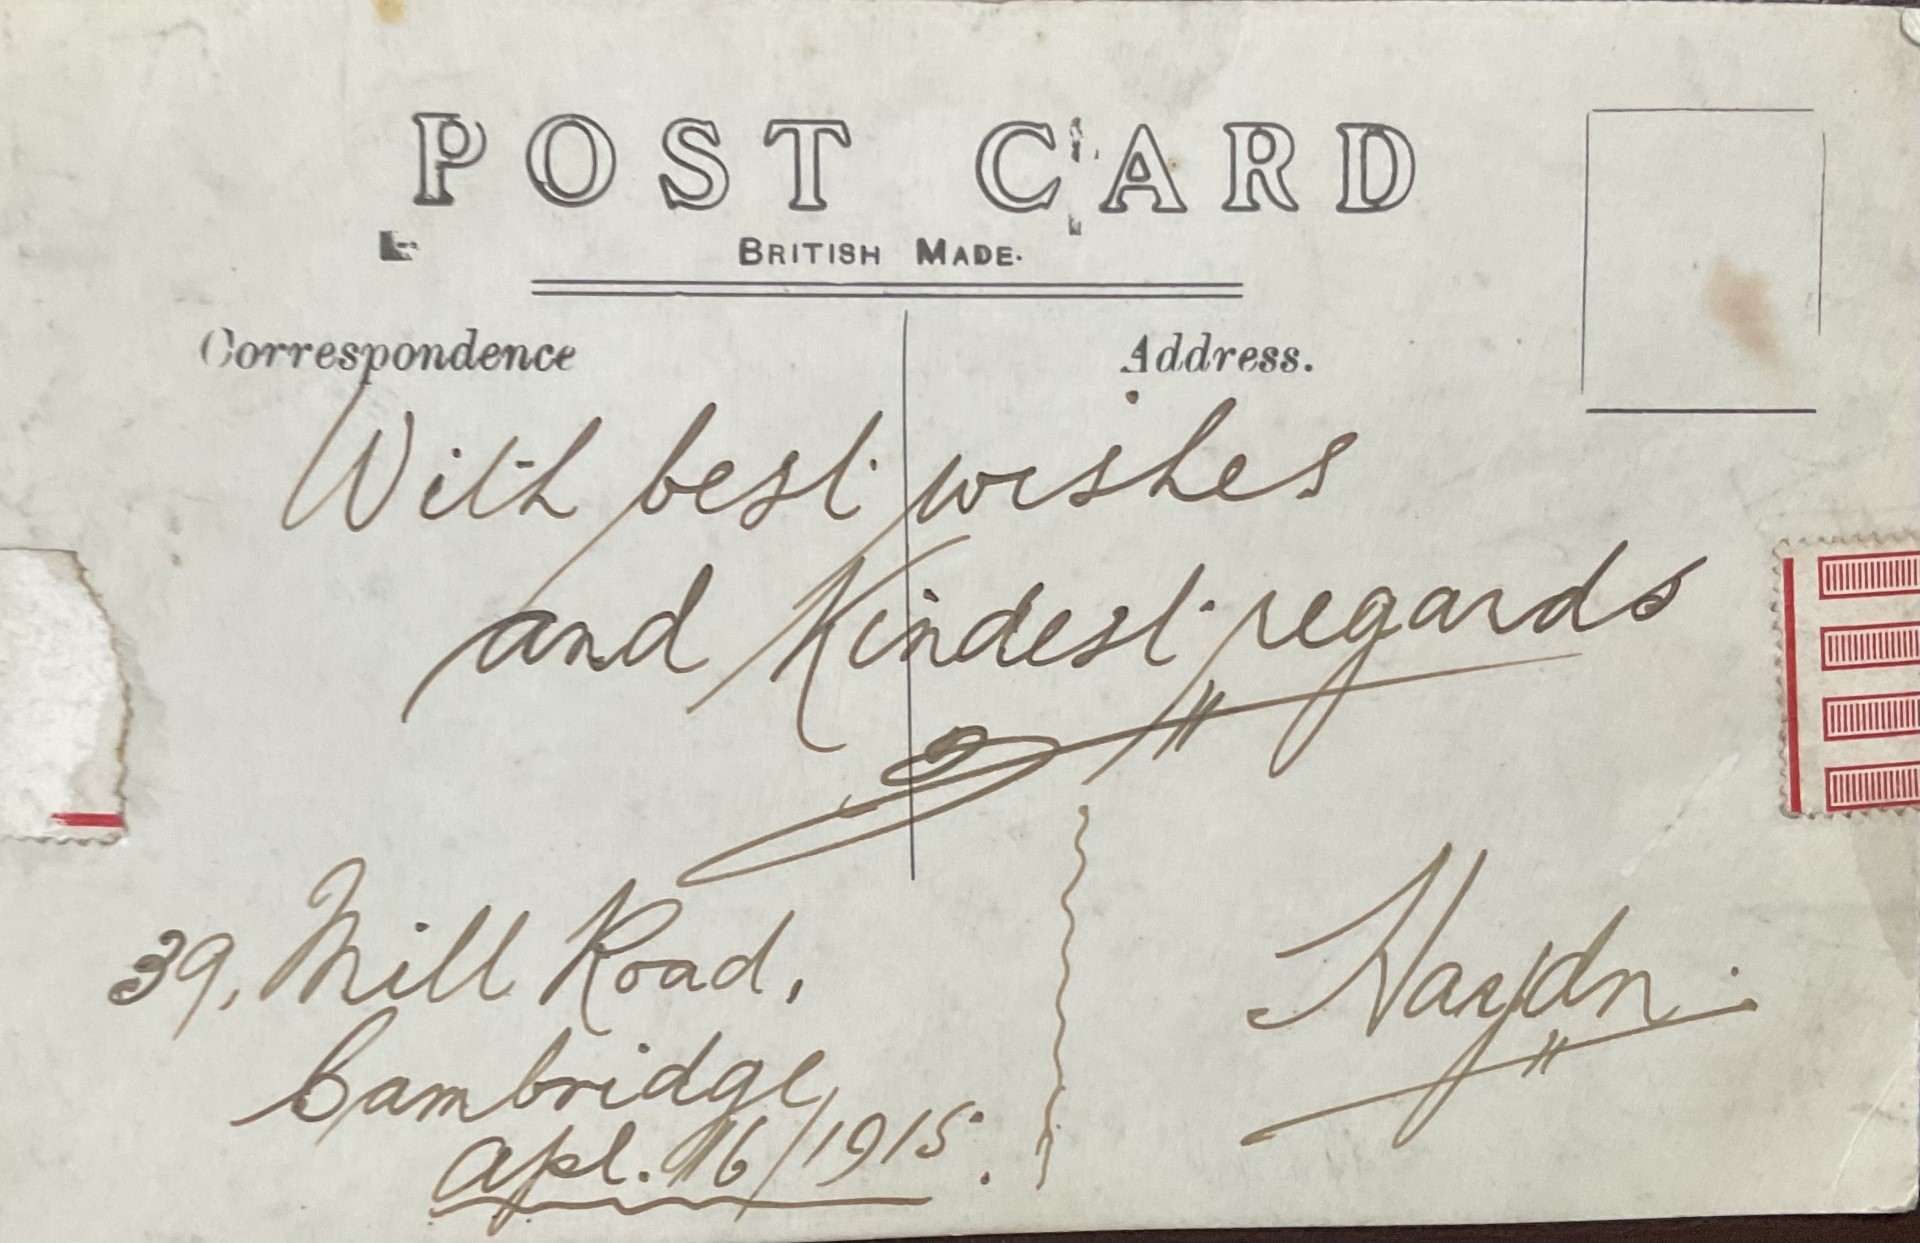 POST CARD
BRITISH MADE.
Correspondence
Address.
With best wishes
and Kindest regards
39, Mill Road,
Cambridge
Apl. 16/1915.
Haydn.